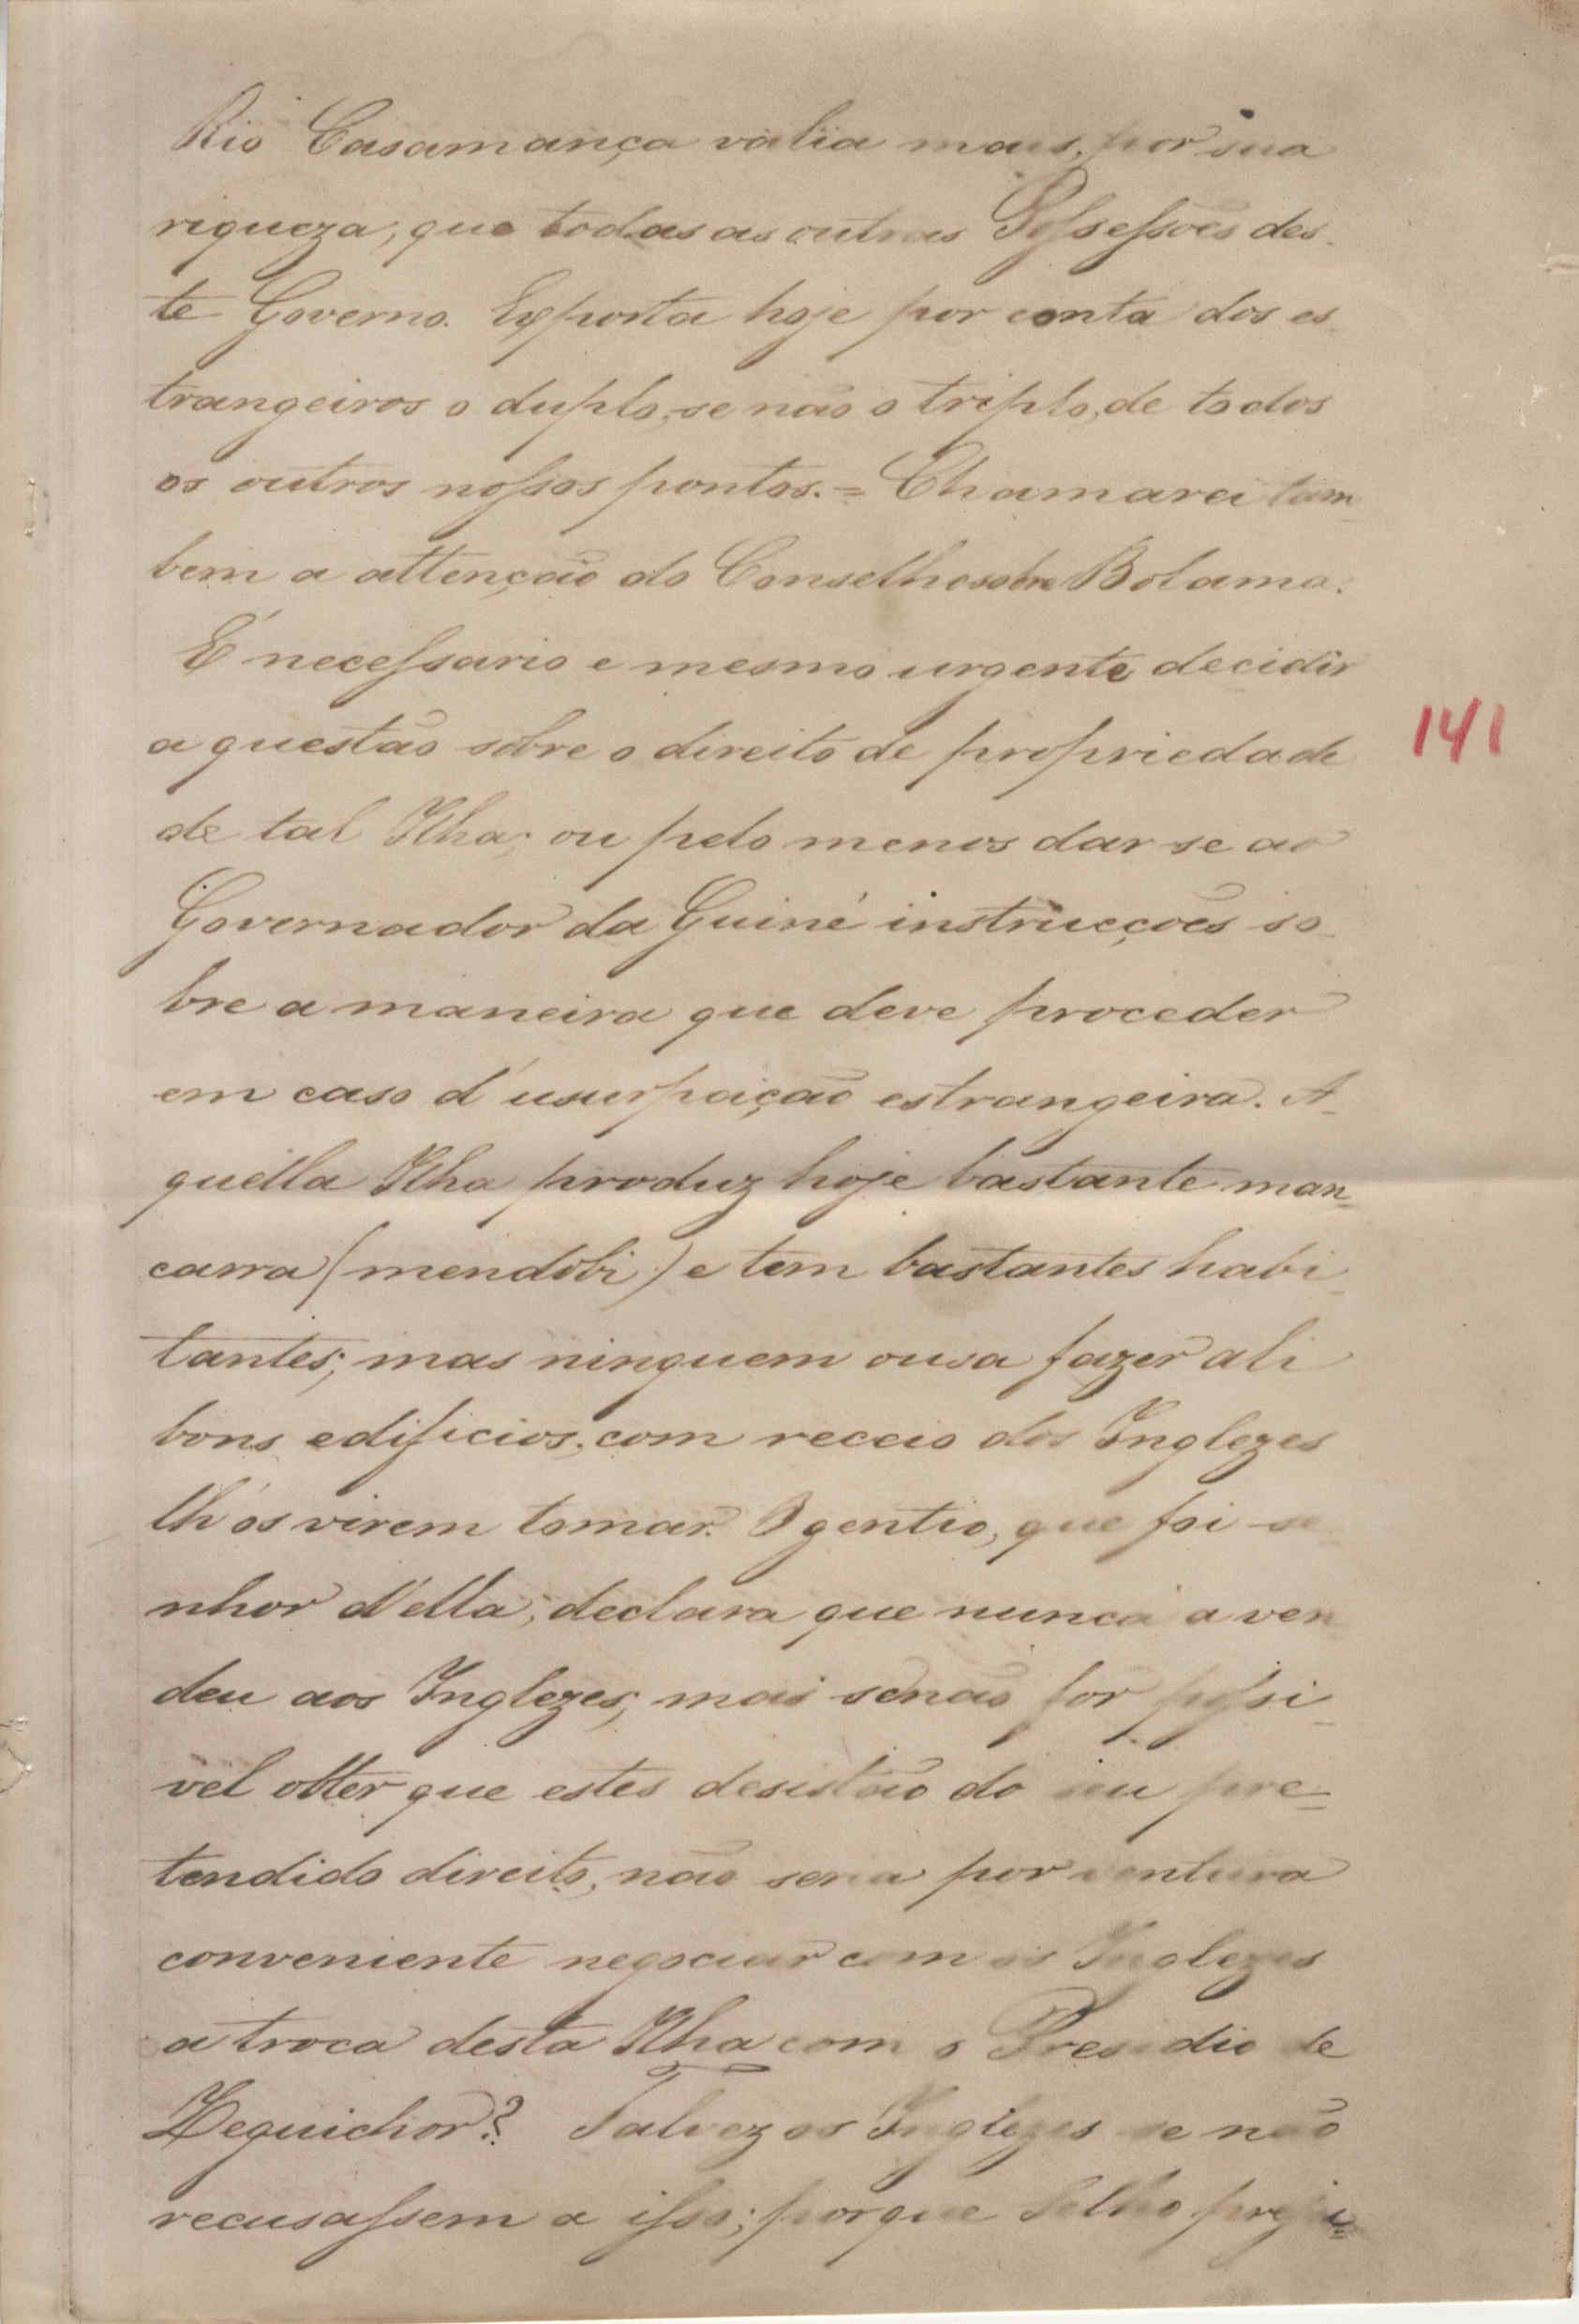 Rio Casamança valia mais, por sua
riqueza, que todas as outras Possessões des-
te Governo. Exporta hoje por conta dos es-
trangeiros o duplo, se não o triplo, de todos
os outros nossos pontos. = Chamarei tam-
bem a attenção do Conselho sobre Bolama.
É necessario e mesmo urgente decidir
a questão sobre o direito de propriedade
141
de tal Ilha; ou pelo menos dar-se ao
Governador da Guiné instrucções so-
bre a maneira que deve proceder
em caso d'usurpação estrangeira. A-
quella Ilha produz hoje bastante man-
carra (mendobi) e tem bastantes habi-
tantes; mas ninguem ousa fazer ali
bons edificios, com receio dos Inglezes
lh'os virem tomar. O gentio, que foi se-
nhor d'ella, declara que nunca a ven
deu aos Inglezes; mas senão for possi-
vel obter que estes desistão do seu pre-
tendido direito, não seria por ventura
conveniente negociar com os Inglezes
a troca desta Ilha com o Presidio de
Zeguichor? Talvez os Inglezes se não
recusassem a isso; porque Selho